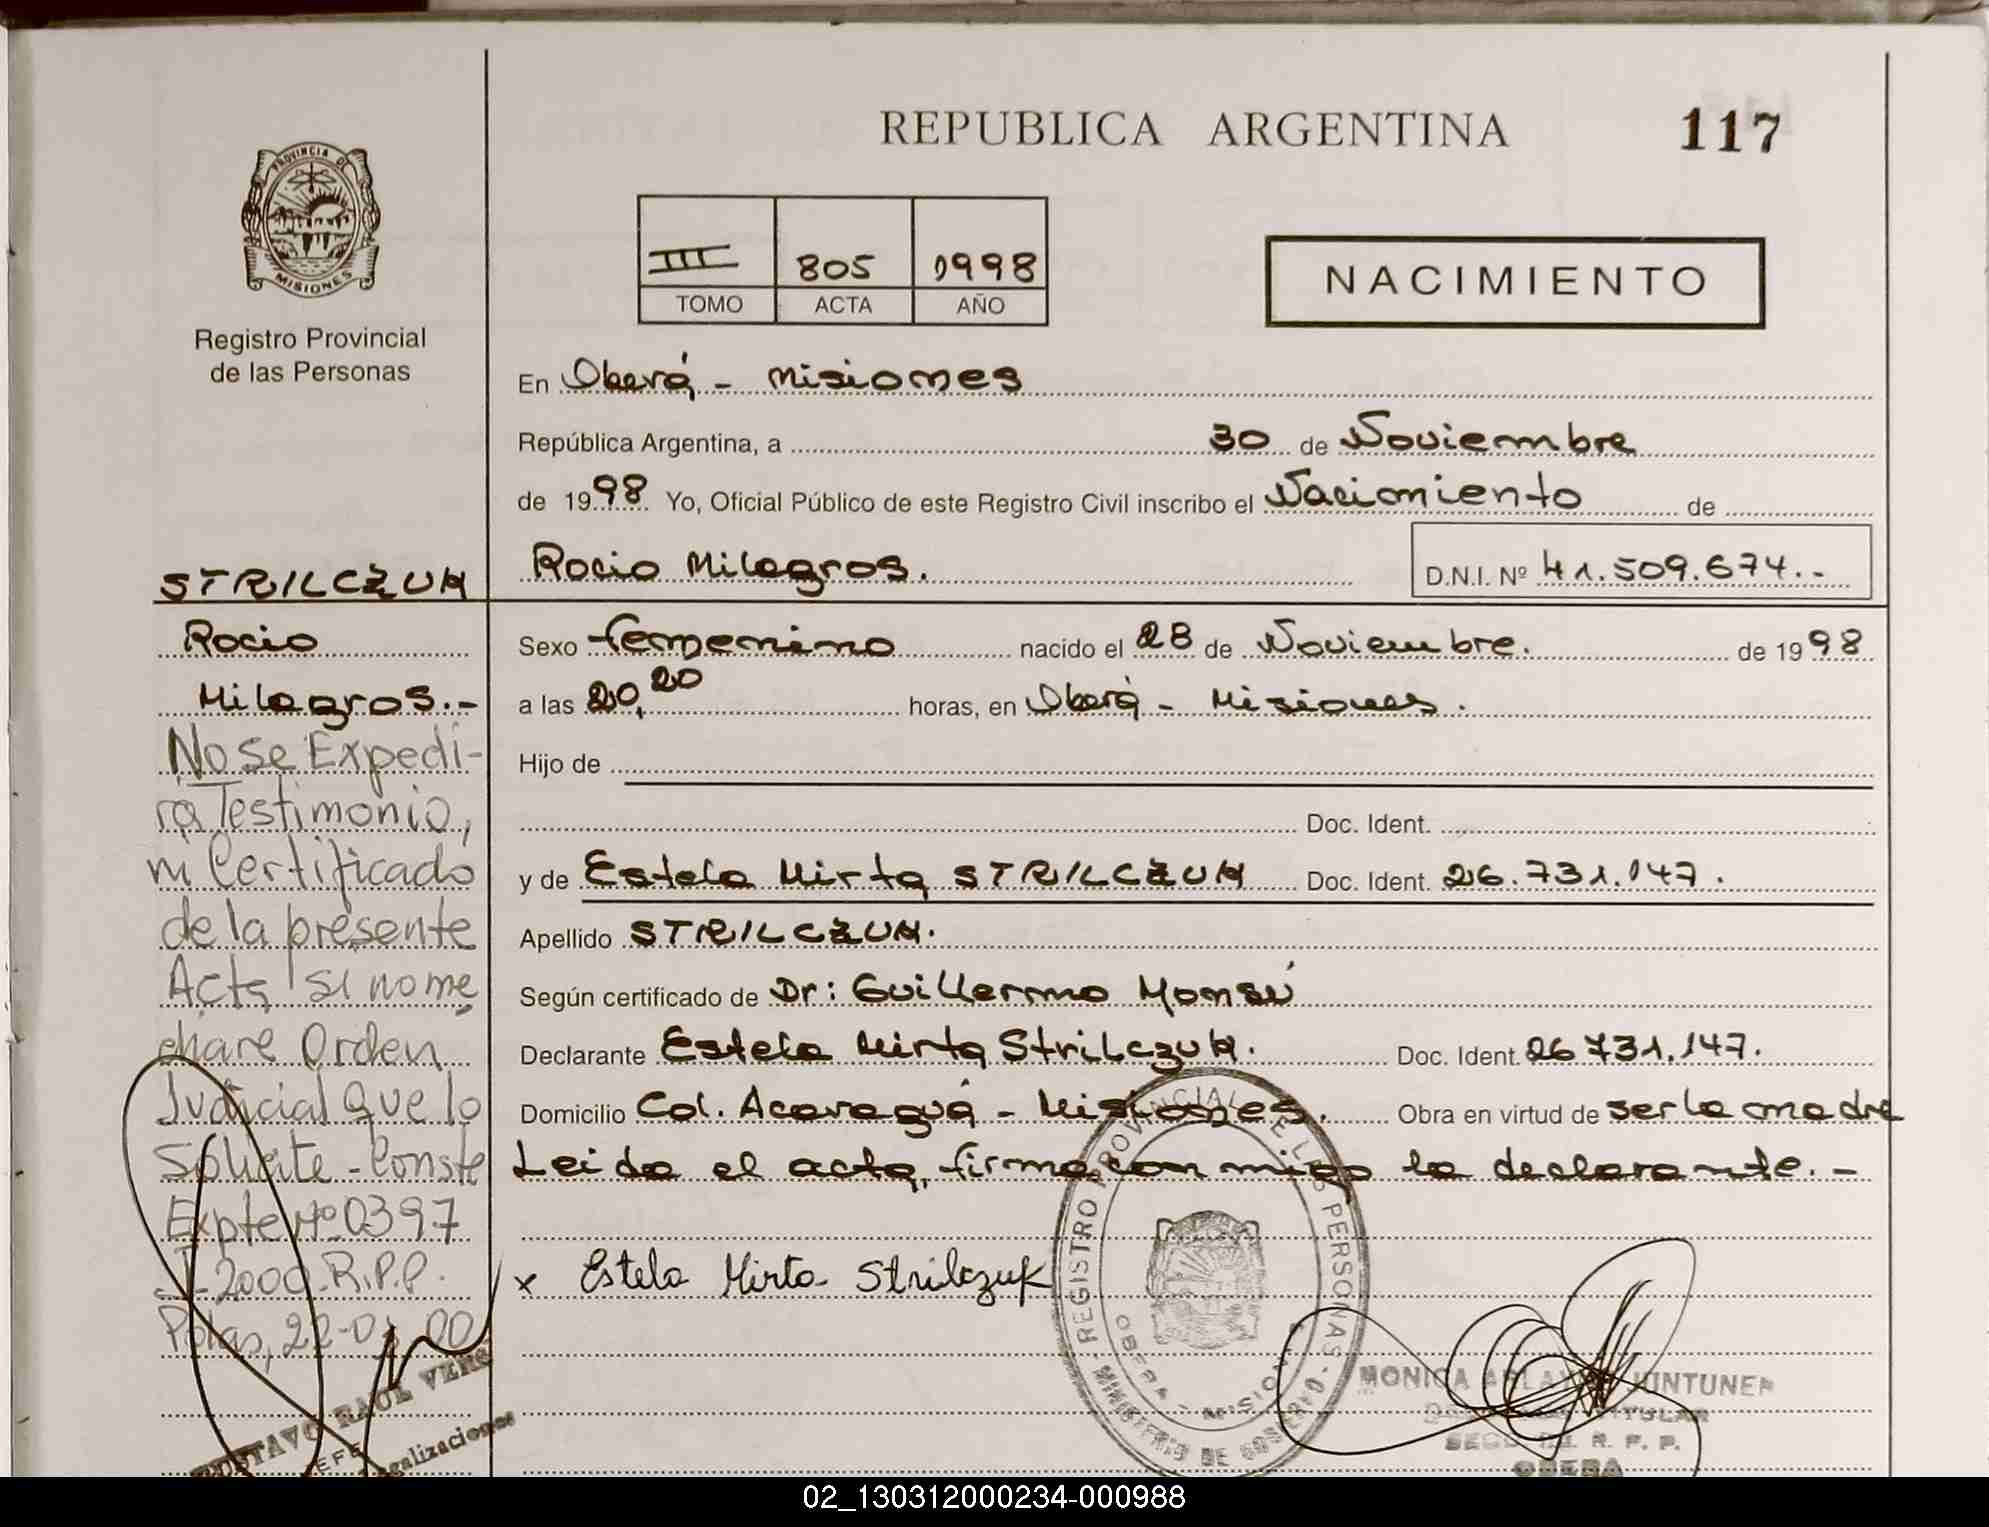 REPUBLICA ARGENTINA
117
PROVINCIA DE
MISIONES
Registro Provincial
de las Personas
III 805 1998
TOMO ACTA AÑO
NACIMIENTO
En Oberá - Misiones
República Argentina, a 30 de Noviembre
de 1998 Yo, Oficial Público de este Registro Civil inscribo el Nacimiento de
Rocio Milagros.
D.N.I. Nº 41.509.674.-
Sexo femenino nacido el 28 de Noviembre. de 1998
a las 20,20 horas, en Oberá - Misiones.
Hijo de
Doc. Ident.
y de Estela Mirta STRILCZUK Doc. Ident. 26.731.147.
Apellido STRILCZUK.
Según certificado de Dr: Guillermo Monsú
Declarante Estela Mirta Strilczuk. Doc. Ident. 26731.147.
Domicilio Col. Acaraguá - Misiones. Obra en virtud de ser la madre
Leida el acta, firma conmigo la declarante.-
x Estela Mirta Strilczuk
STRILCZUK
Rocio
Milagros.-
No se Expedi-
rá Testimonio,
ni Certificado
de la presente
Acta si no me
diare Orden
Judicial que lo
Solicite - Conste
Expte Nº 0397
2000 R.P.P.
Pdas, 22-03-00
RAUL
JEFE
Legalizaciones
REGISTRO PROVINCIAL DE LAS PERSONAS
MINISTERIO DE GOBIERNO
OBERA - MISIONES
MONICA JUNTUNEN
TITULAR
R. P. P.
OBERA
02_130312000234-000988